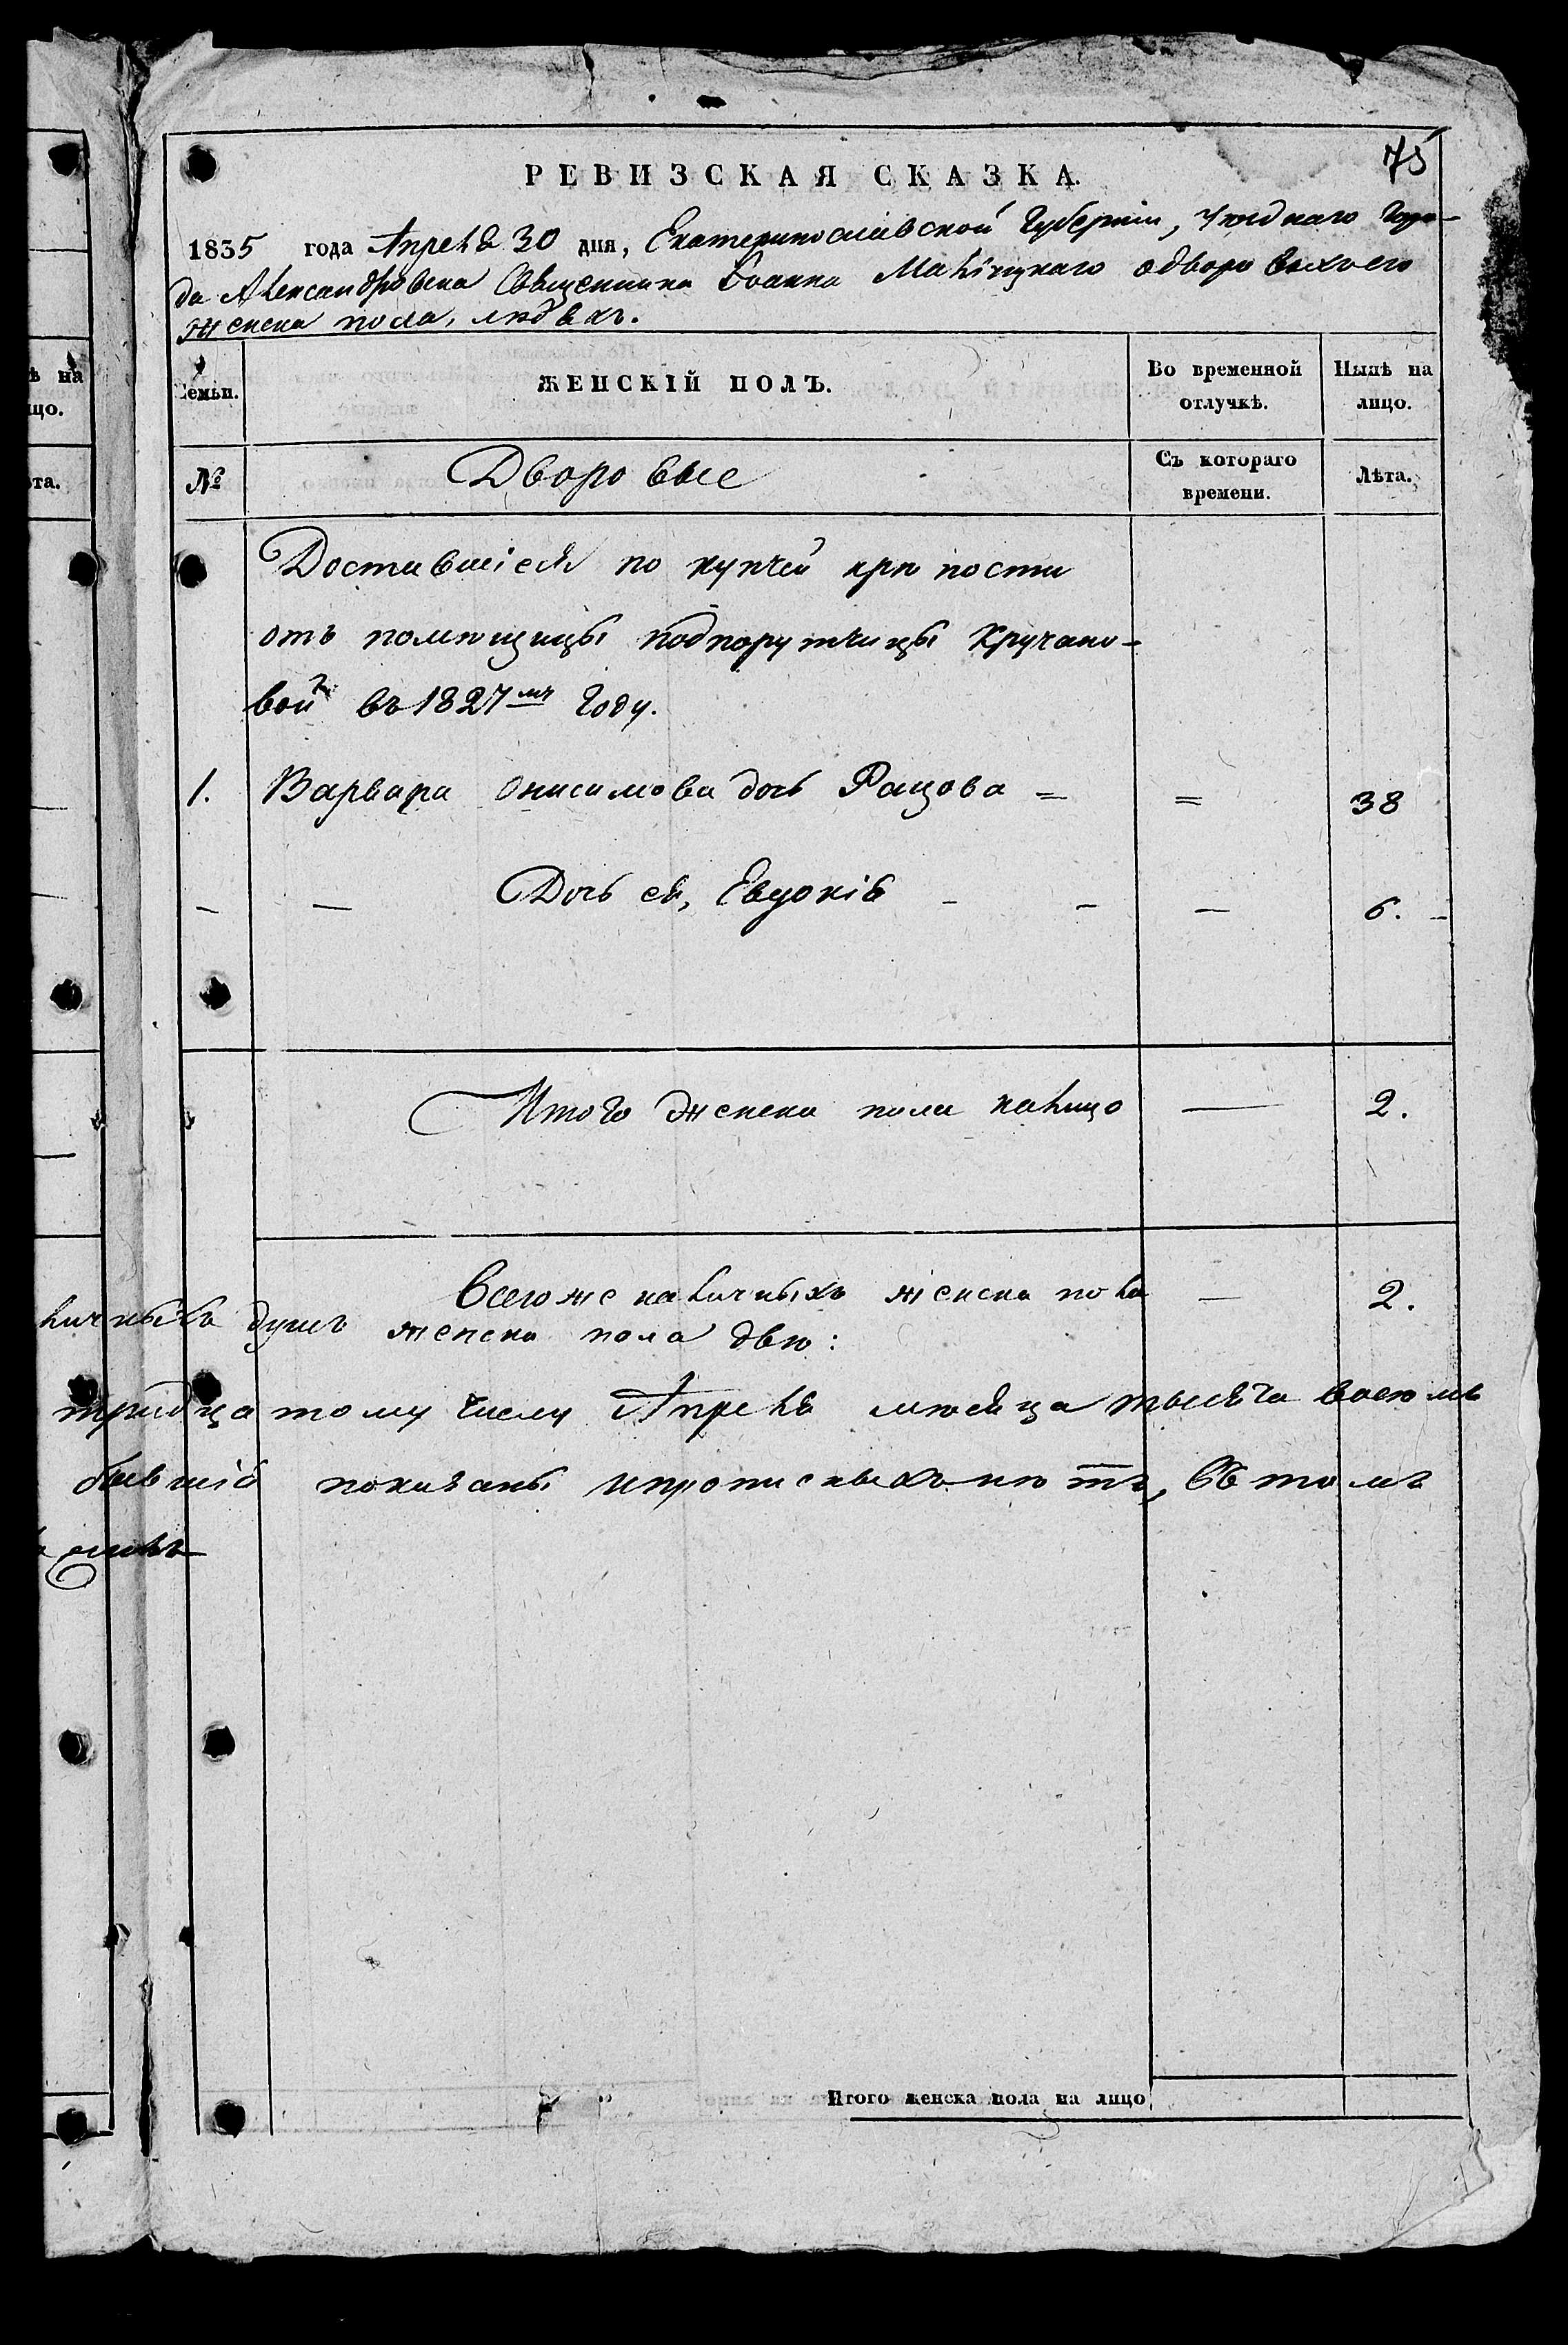 75
РЕВИЗСКАЯ СКАЗКА.
1835 года Апреля 30 дня, Екатеринославской Губерніи, Уѣзднаго Горо-
да Александровска Священника Іоанна одворовыхъ его
женска пола, людѣхъ.
ѣ на
цо.
Семьи.
ЖЕНСКІЙ ПОЛЪ.
Во временной
отлучкѣ.
Нынѣ на
лицо.
та.
№
Дворовые
Съ котораго
времени.
Лѣта.
Доставшіеся по купчей крѣпости
отъ помѣщицы подпорутчицы Кручано-
вой въ 1827мъ Году.
1. Варвара Онисимова дочь Рацова = = 38
— — Дочь ея, Евдокія - - — 6. -
Итого женска пола налицо — 2.
Всего же наличныхъ женска пола — 2.
личныхъ душъ женска пола двѣ:
тридцатому числу Апреля мѣсяца тысяча восемь
бывшія показаны ипрописныхъ нѣтъ, въ томъ
Итого женска пола на лицо